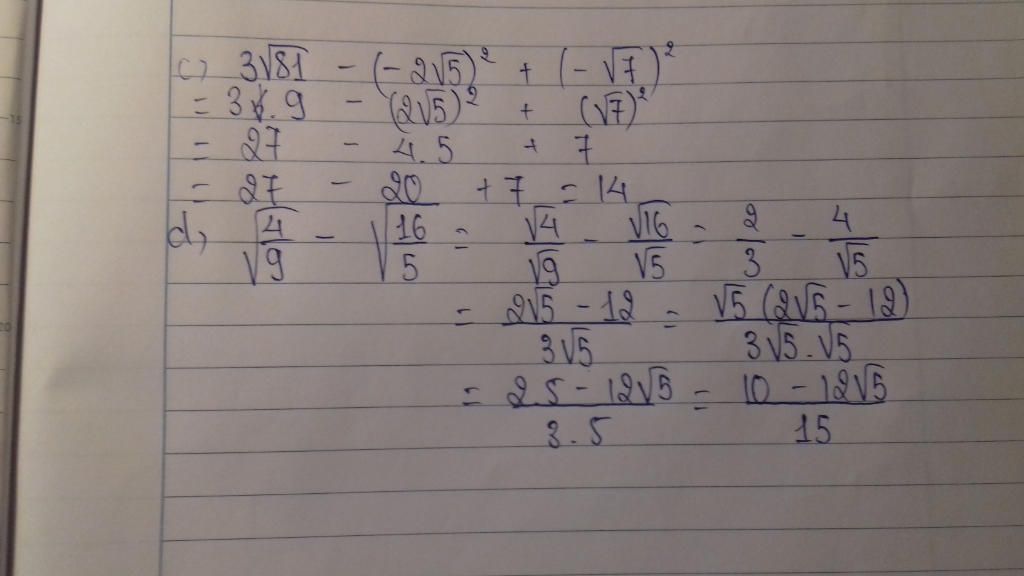 c) 3√81 - (-2√5)² + (-√7)²
= 3.9 - (2√5)² + (√7)²
= 27 - 4.5 + 7
= 27 - 20 + 7 = 14
d, √(4/9) - √(16/5) = √4/√9 - √16/√5 = 2/3 - 4/√5
= (2√5 - 12)/(3√5) = √5(2√5 - 12)/(3√5.√5)
= (2.5 - 12√5)/(3.5) = (10 - 12√5)/15